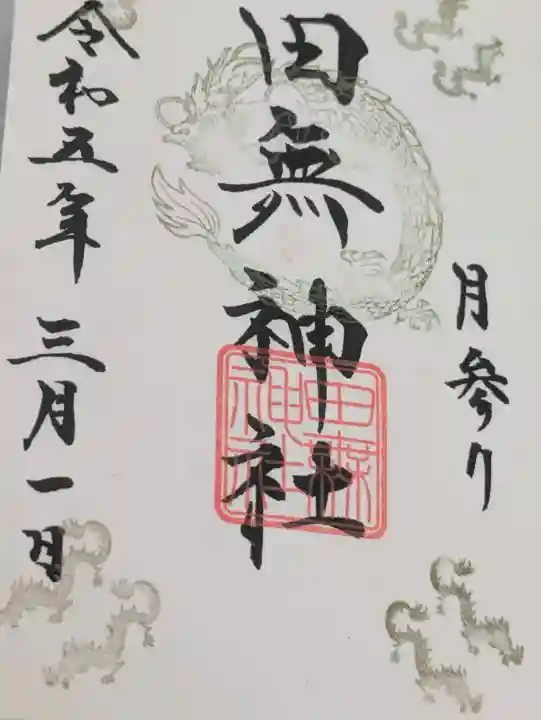 月参り
田無神社
田無神社
令和五年 三月一日